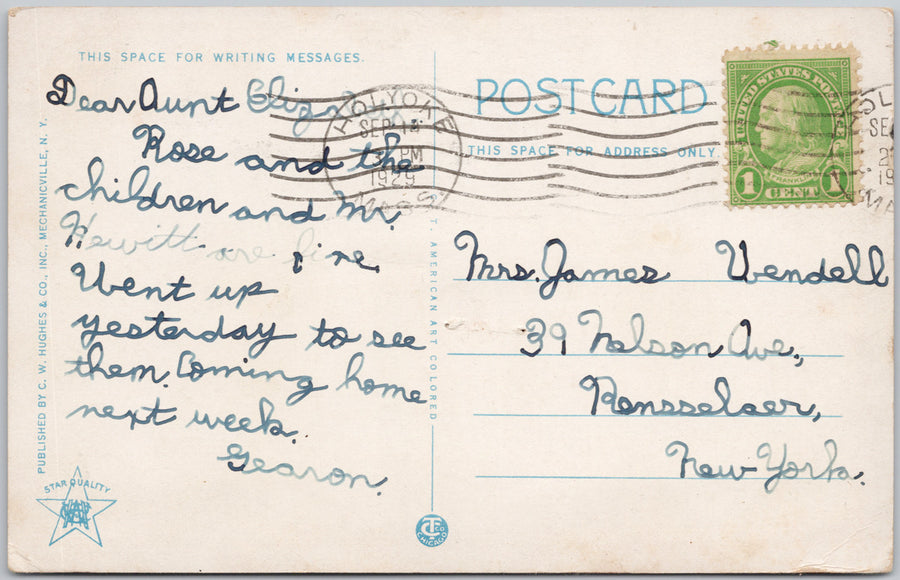 THIS SPACE FOR WRITING MESSAGES.
Dear Aunt
Rose and the
children and Mr.
Hewitt are fine.
Went up
yesterday to see
them. Coming home
next week.
Gearon.
POST CARD
THIS SPACE FOR ADDRESS ONLY.
Mrs. James Wendell
39 Nelson Ave.,
Rensselaer,
New York.
HOLYOKE
SEP
PM
1929
MASS.
UNITED STATES POSTAGE
FRANKLIN
1 CENT 1
PUBLISHED BY C. W. HUGHES & CO., INC., MECHANICVILLE, N. Y.
C. T. AMERICAN ART COLORED
STAR QUALITY
CT CO
CHICAGO